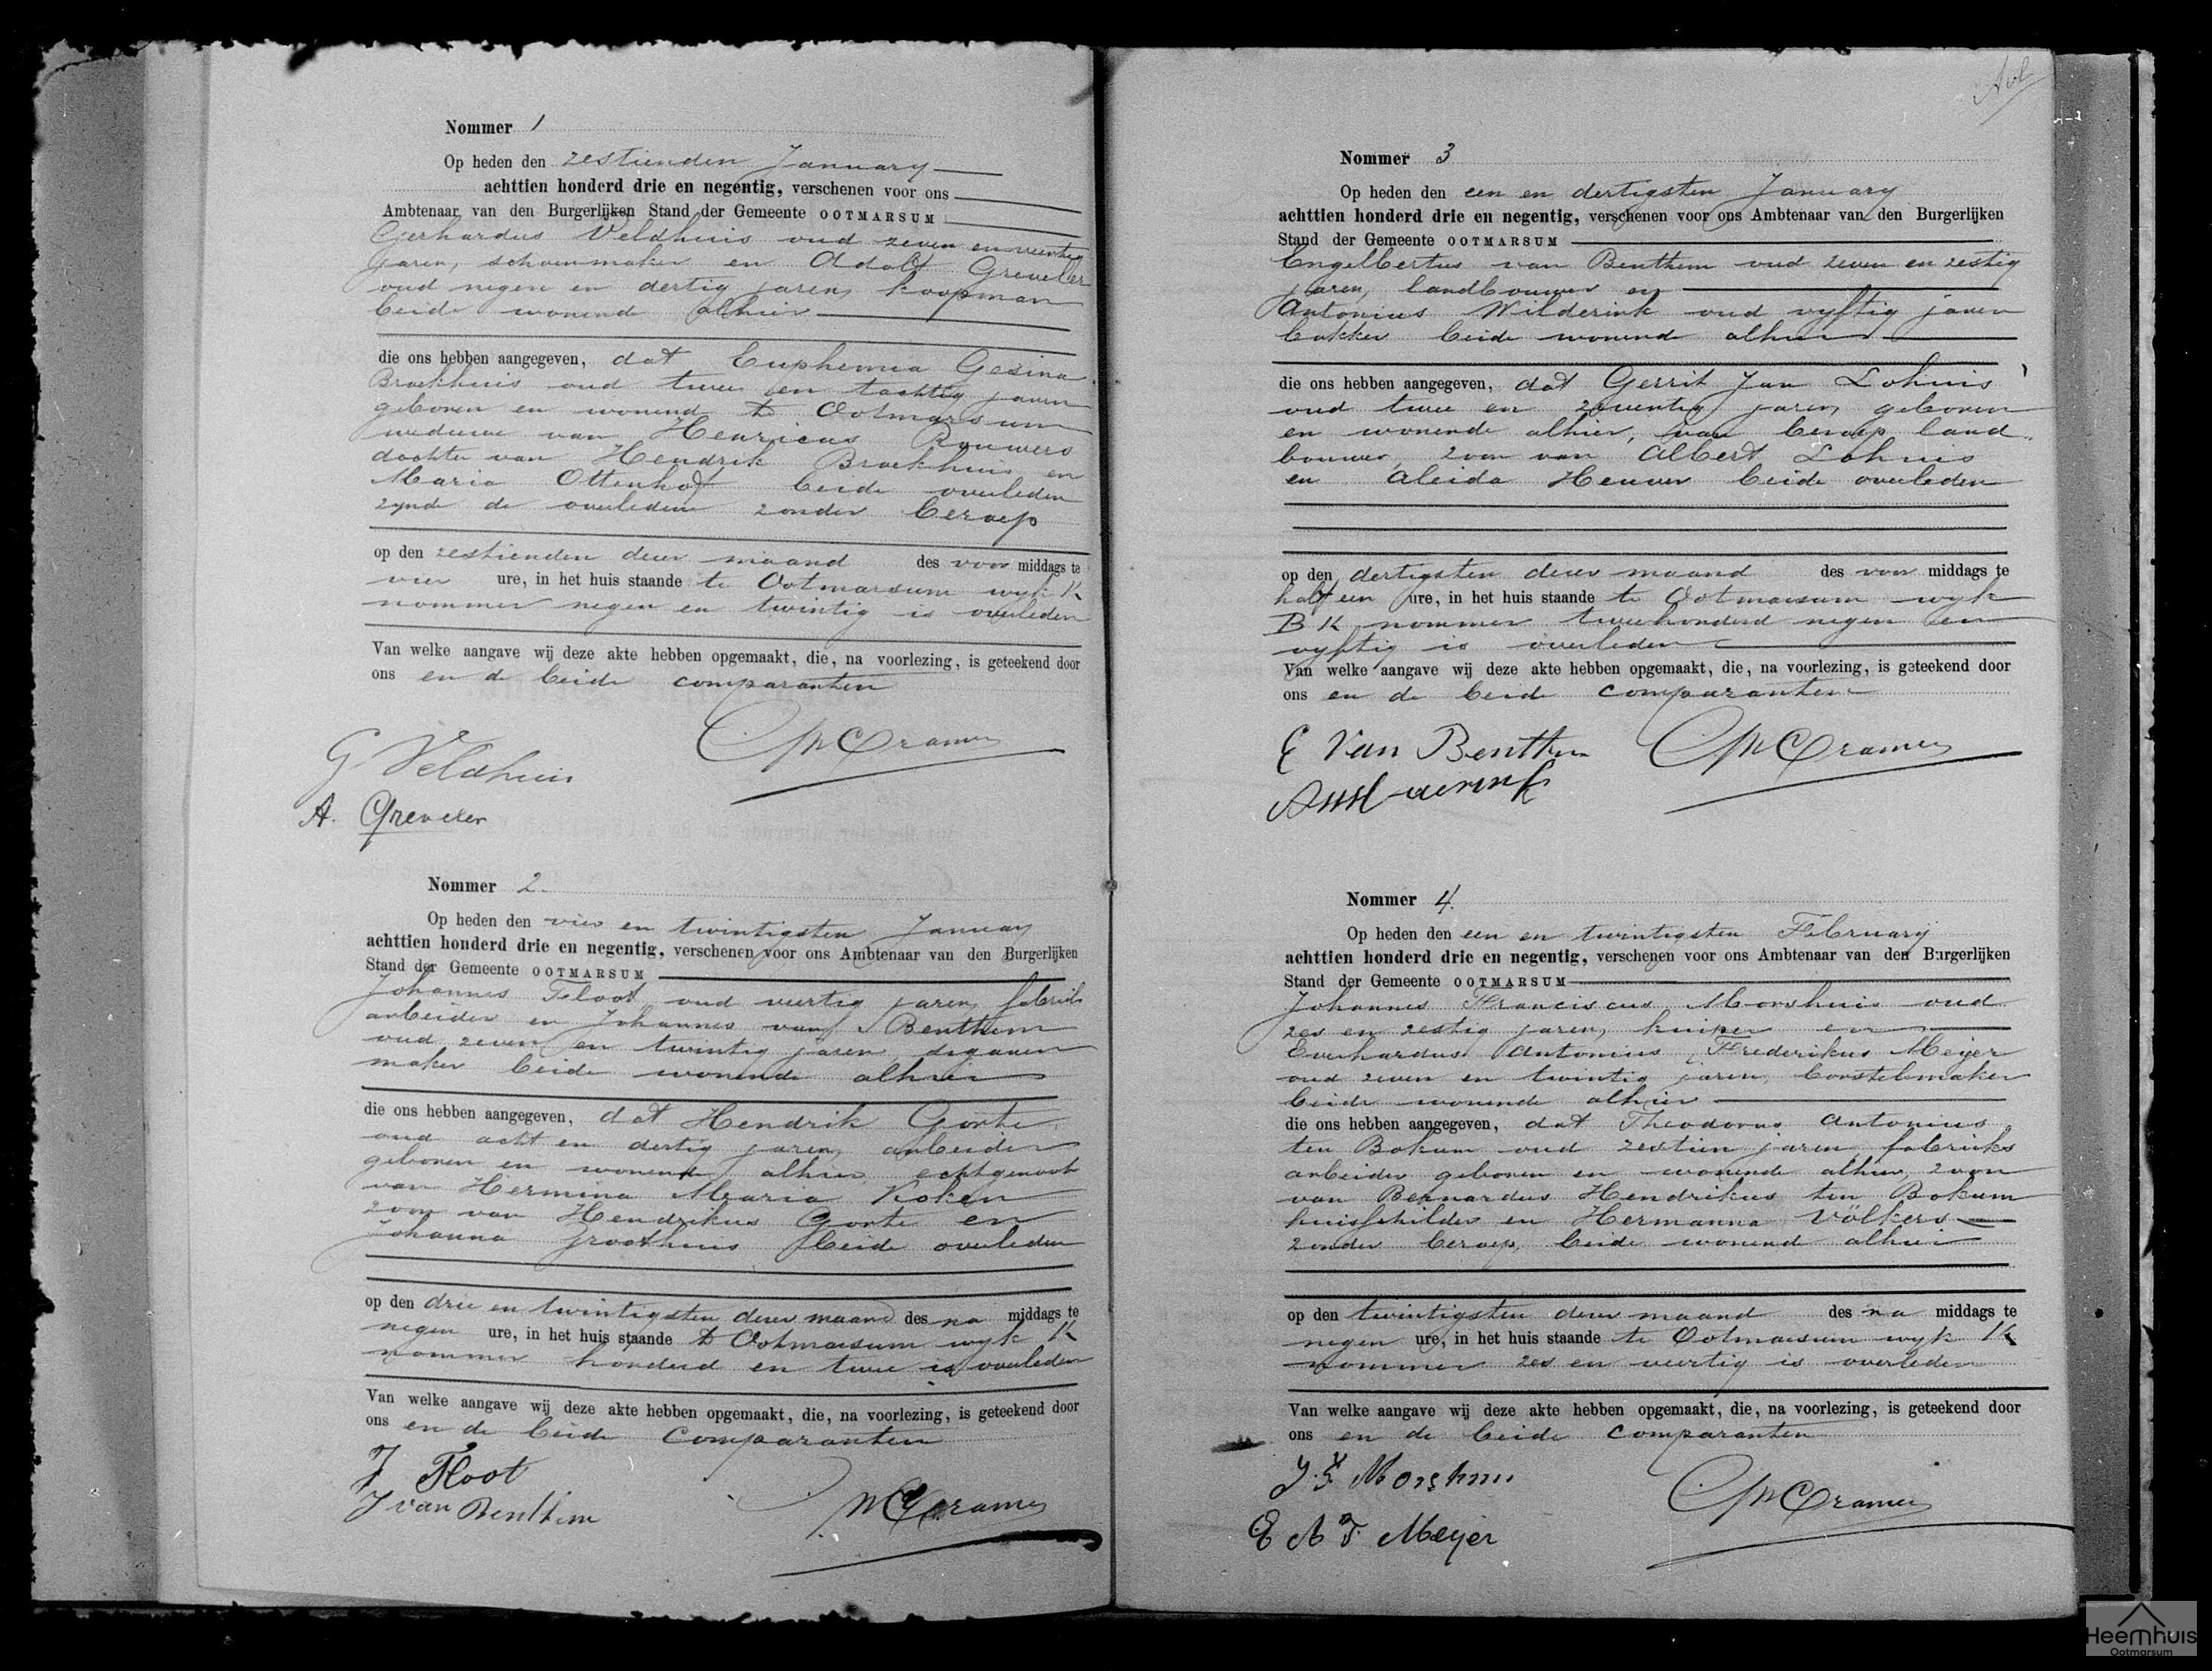 Nommer 1
Op heden den zestienden January
achttien honderd drie en negentig, verschenen voor ons
Ambtenaar van den Burgerlijken Stand der Gemeente OOTMARSUM
Gerhardus Veldhuis oud zeven en
jaren, schoenmaker en Adolf Greveler
oud negen en dertig jaren, koopman
beide wonende alhier
die ons hebben aangegeven, dat Euphemia Gesina
Broekhuis oud twee en tachtig jaren
geboren en wonend te Ootmarsum
weduwe van Henricus Rouwers
dochter van Hendrik Broekhuis en
Maria Ottenhof beide overleden
zynde de overledene zonder beroep
op den zestienden dezer maand des voor middags te
vier ure, in het huis staande te Ootmarsum wyk K
nommer negen en twintig is overleden
Van welke aangave wij deze akte hebben opgemaakt, die, na voorlezing, is geteekend door
ons en de beide comparanten
G Veldhuis
Cramer
A. Greveler
Nommer 2.
Op heden den vier en twintigsten January
achttien honderd drie en negentig, verschenen voor ons Ambtenaar van den Burgerlijken
Stand der Gemeente OOTMARSUM
Johannes Floot oud veertig jaren, fabriek
arbeider en Johannes van Benthem
oud zeven en twintig jaren, sigaren
maker beide wonende alhier
die ons hebben aangegeven, dat Hendrik Gorte
oud acht en dertig jaren, arbeider
geboren en wonend alhier echtgenoot
van Hermina Maria Koken
zoon van Hendrikus Gorte en
Johanna Groothuis beide overleden
op den drie en twintigsten dezer maand des na middags te
negen ure, in het huis staande te Ootmarsum wyk K
nommer honderd en twee is overleden
Van welke aangave wij deze akte hebben opgemaakt, die, na voorlezing, is geteekend door
ons en de beide comparanten
J Floot
J van Benthem
Cramer
Nommer 3
Op heden den een en dertigsten January
achttien honderd drie en negentig, verschenen voor ons Ambtenaar van den Burgerlijken
Stand der Gemeente OOTMARSUM
Engelbertus van Benthem oud zeven en zestig
jaren, landbouwer en
Antonius Wilderink oud vyftig jaren
bakker beide wonende alhier
die ons hebben aangegeven, dat Gerrit Jan Lohuis
oud twee en zeventig jaren, geboren
en wonende alhier, van beroep land
bouwer, zoon van Albert Lohuis
en Aleida Heuver beide overleden
op den dertigsten dezer maand des voor middags te
half een ure, in het huis staande te Ootmarsum wyk
B K nommer tweehonderd negen en
vyftig is overleden
Van welke aangave wij deze akte hebben opgemaakt, die, na voorlezing, is geteekend door
ons en de beide comparanten
E Van Benthem
Cramer
Nommer 4.
Op heden den een en twintigsten February
achttien honderd drie en negentig, verschenen voor ons Ambtenaar van den Burgerlijken
Stand der Gemeente OOTMARSUM
Johannes Franciscus Morshuis oud
zes en zestig jaren, kuiper en
Everhardus Antonius Frederikus Meijer
oud zeven en twintig jaren, borstelmaker
beide wonende alhier
die ons hebben aangegeven, dat Theodorus Antonius
ten Bokum oud zestien jaren fabrieks
arbeider geboren en wonende alhier, zoon
van Bernardus Hendrikus ten Bokum
huisschilder en Hermanna Völkers
zonder beroep, beide wonend alhier
op den twintigsten dezer maand des na middags te
negen ure, in het huis staande te Ootmarsum wyk K
nommer zes en veertig is overleden
Van welke aangave wij deze akte hebben opgemaakt, die, na voorlezing, is geteekend door
ons en de beide comparanten
J. F Morshuis
Cramer
E A F. Meijer
Heemhuis
Ootmarsum